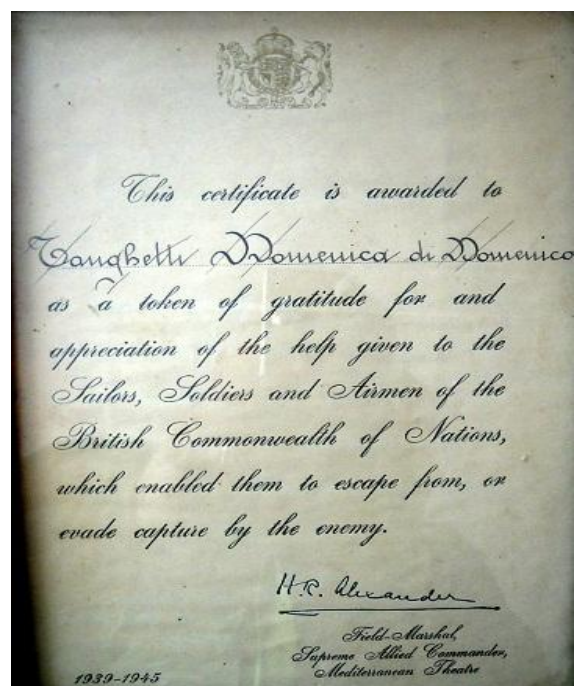 This certificate is awarded to
Tanghetti Domenica di Domenico
as a token of gratitude for and
appreciation of the help given to the
Sailors, Soldiers and Airmen of the
British Commonwealth of Nations,
which enabled them to escape from, or
evade capture by the enemy.
H.R. Alexander
Field-Marshal,
Supreme Allied Commander,
Mediterranean Theatre
1939-1945